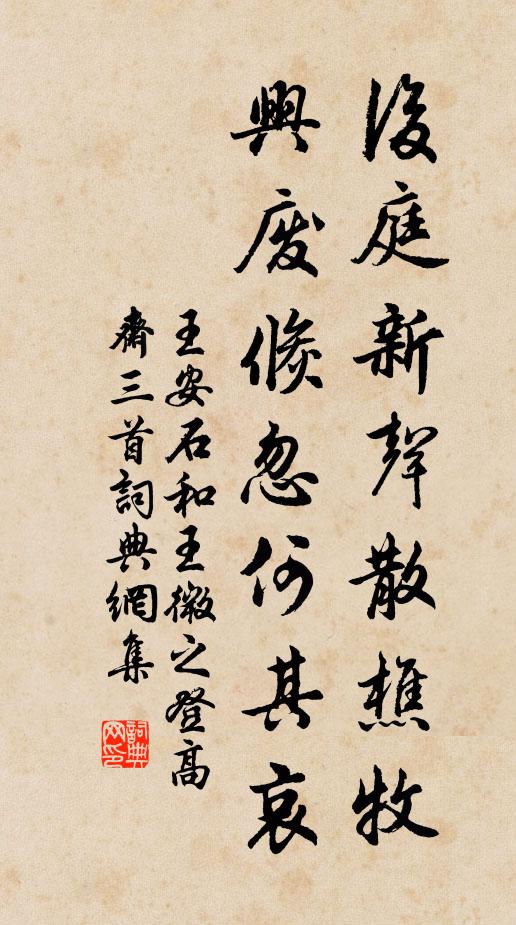 後庭新聲散樵牧
興廢倏忽何其哀
王安石和王微之登高
齋三首詞典網集
詞典
网印